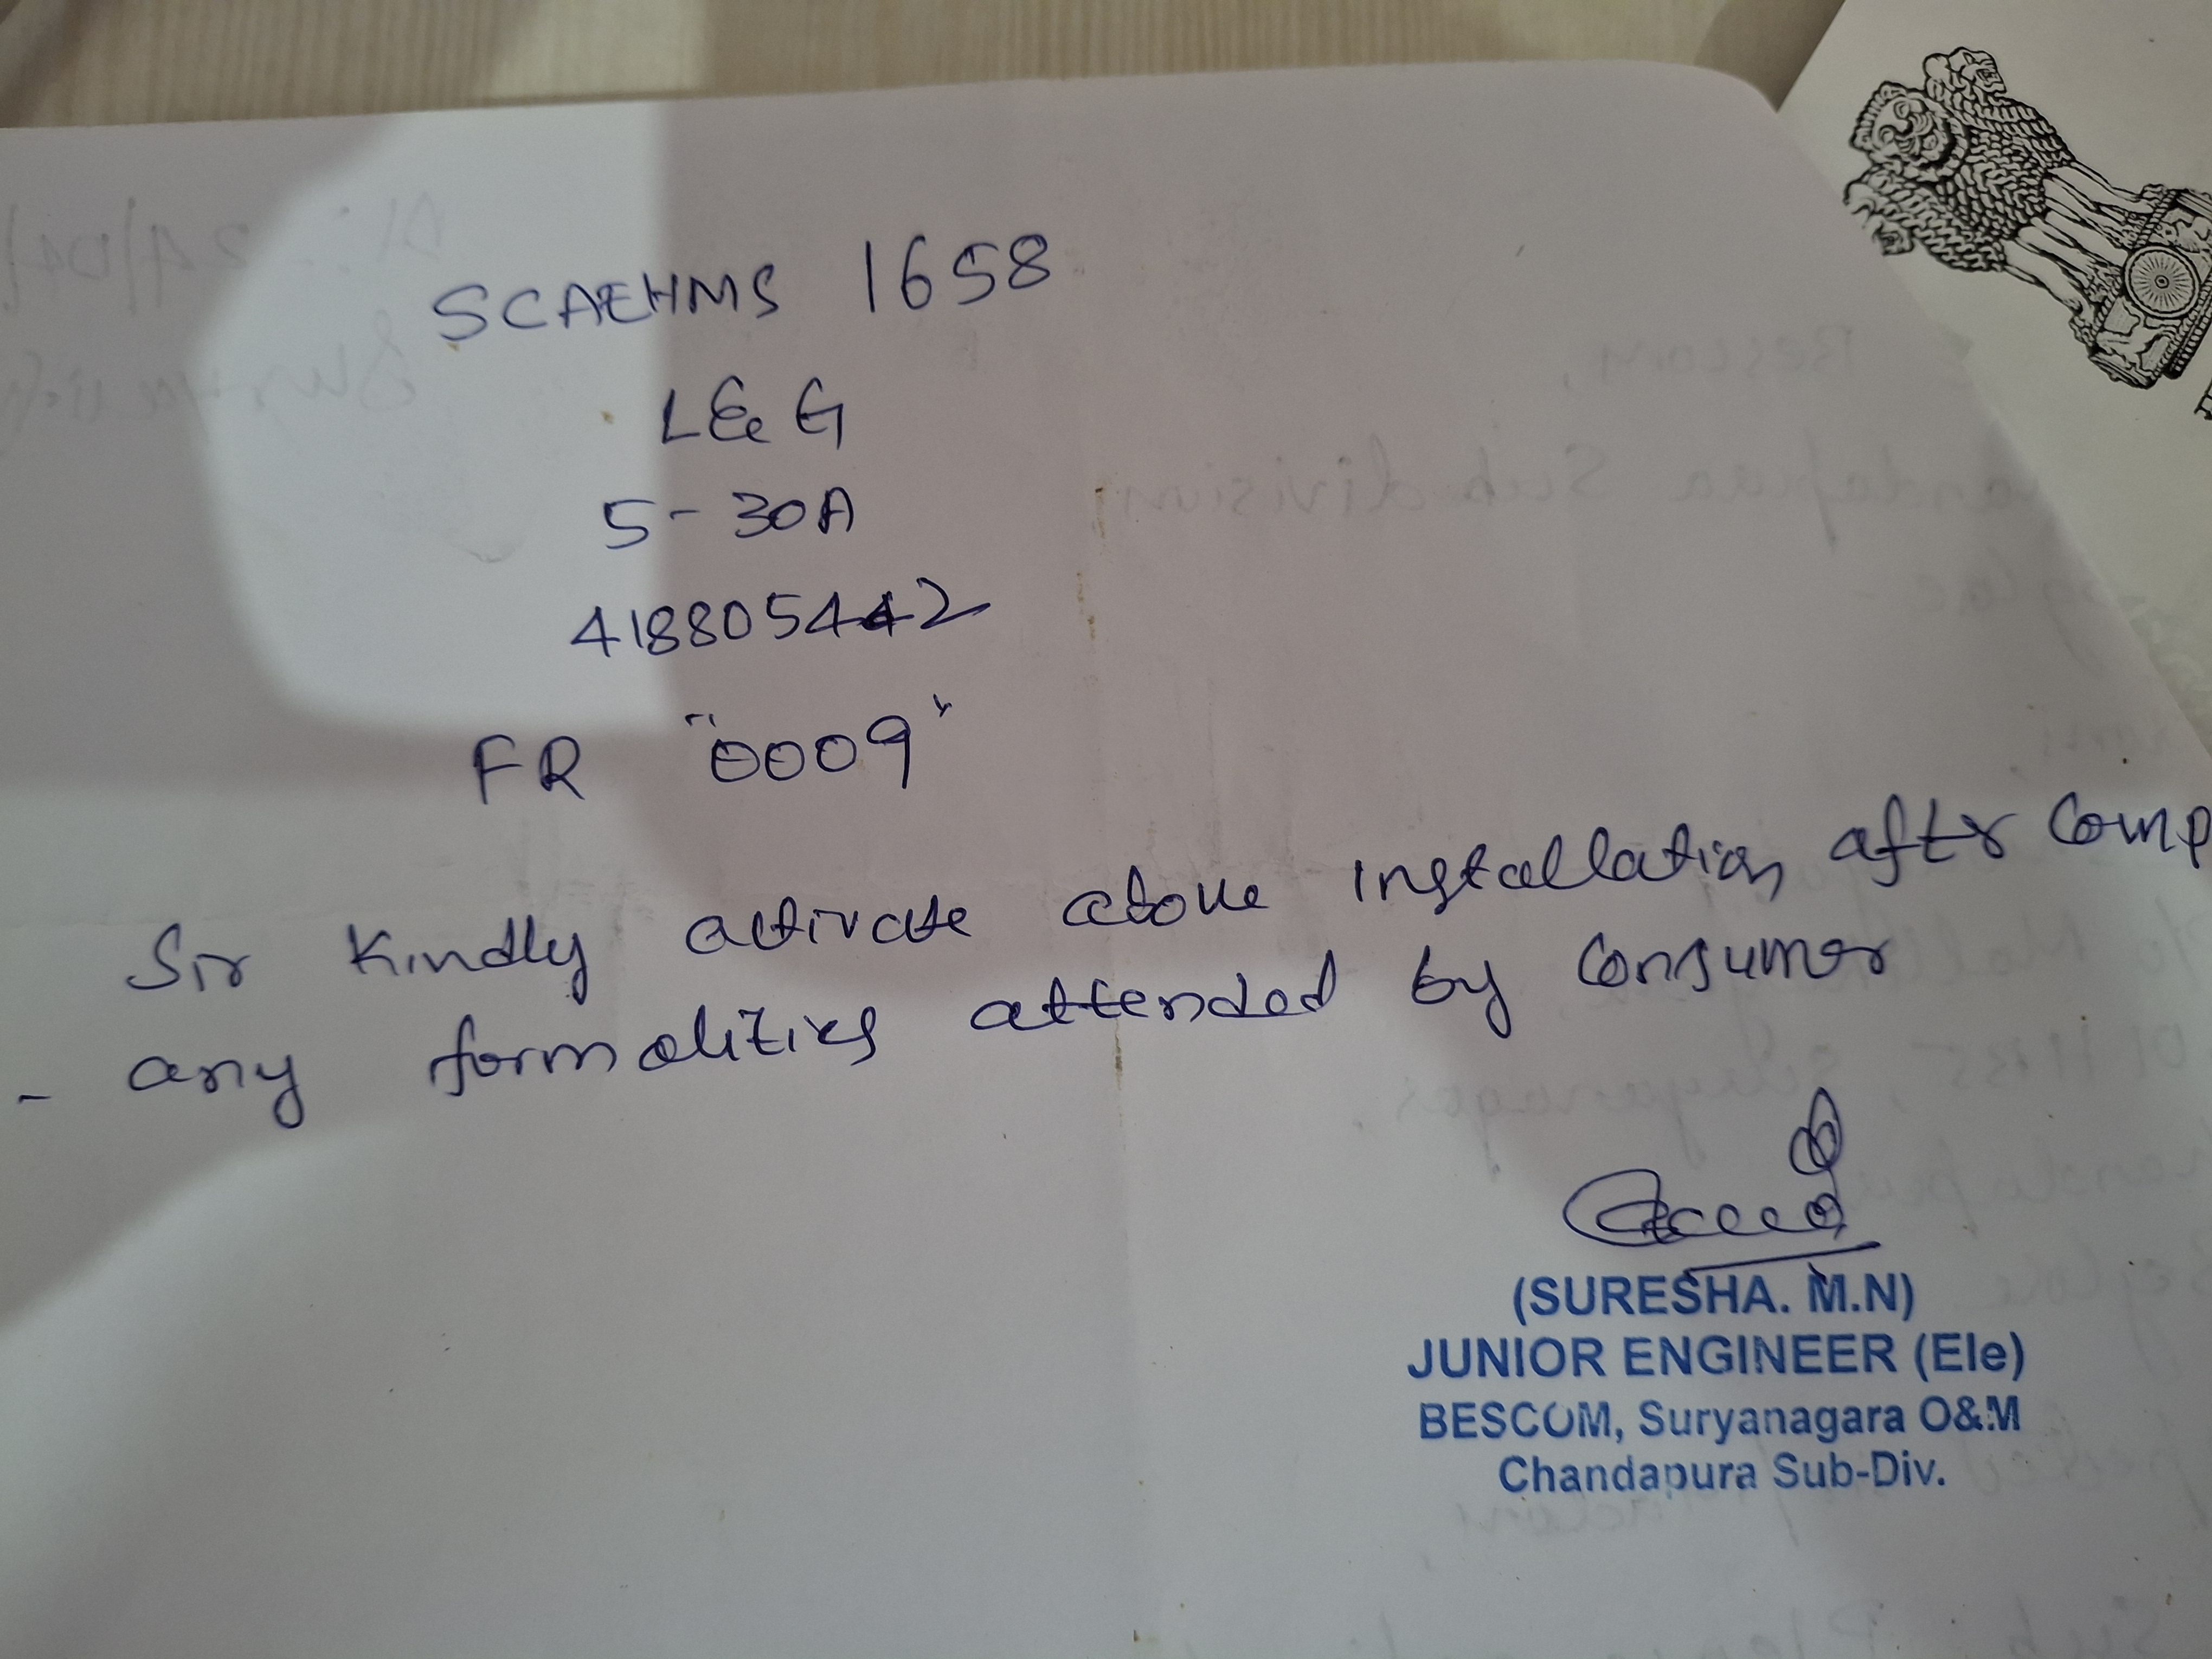 SCAEHMS 1658
L&G
5-30A
418805442
FR "0009"
Sir Kindly activate above installation after Comp
- any formalities attended by Consumer
(SURESHA. M.N)
JUNIOR ENGINEER (Ele)
BESCOM, Suryanagara O&M
Chandapura Sub-Div.